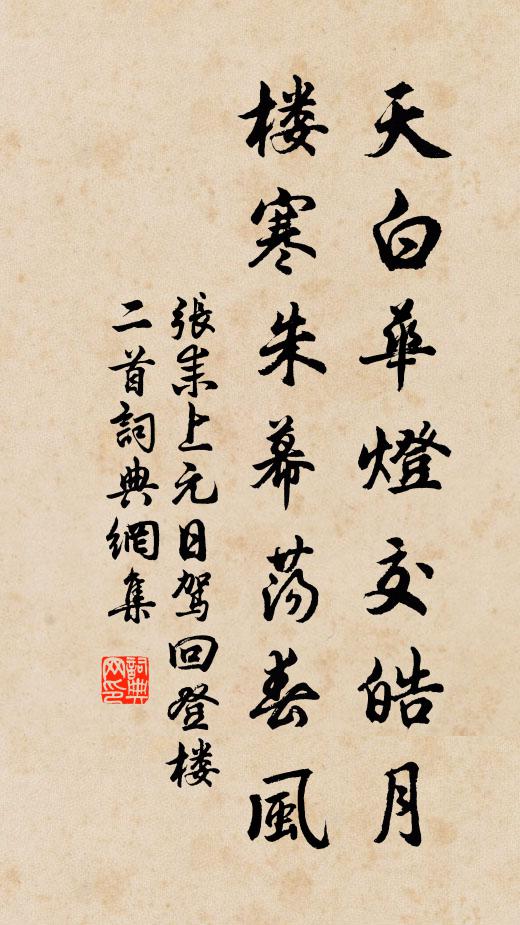 天白華燈交皓月
楼寒朱幕荡春風
張耒上元日驾回登楼
二首詞典網集
詞典网印